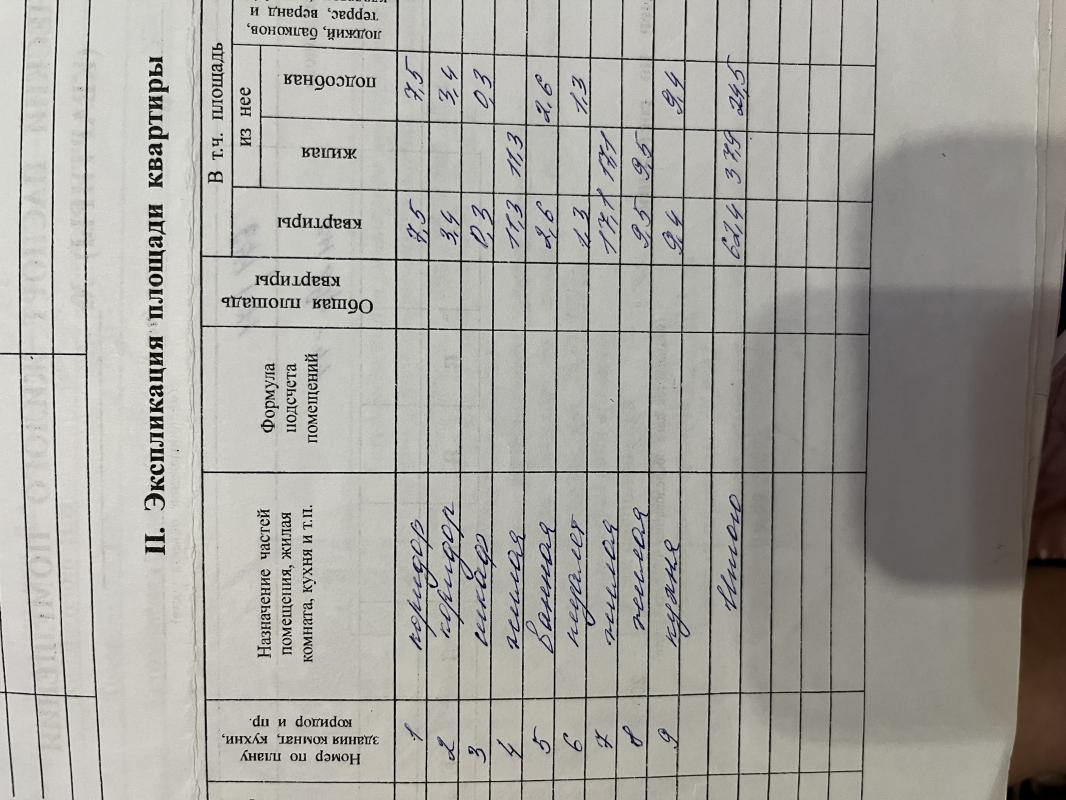 II. Экспликация площади квартиры
Номер по плану
здания комнат, кухни,
коридор и пр.
Назначение частей
помещения, жилая
комната, кухня и т.п.
Формула
подсчета
помещений
Общая площадь
квартиры
В т.ч. площадь
квартиры
из нее
жилая
подсобная
лоджий, балконов,
террас, веранд и
1 коридор 7,5 7,5
2 коридор 3,4 3,4
3 шкаф 0,3 0,3
4 жилая 11,3 11,3
5 ванная 2,6 2,6
6 туалет 1,3 1,3
7 жилая 17,1 17,1
8 жилая 9,5 9,5
9 кухня 9,4 9,4
Итого 62,4 37,9 24,5